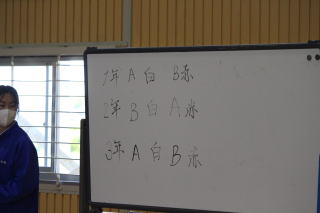 1年 A 白 B赤
2年 B 白 A 赤
3年 A 白 B 赤